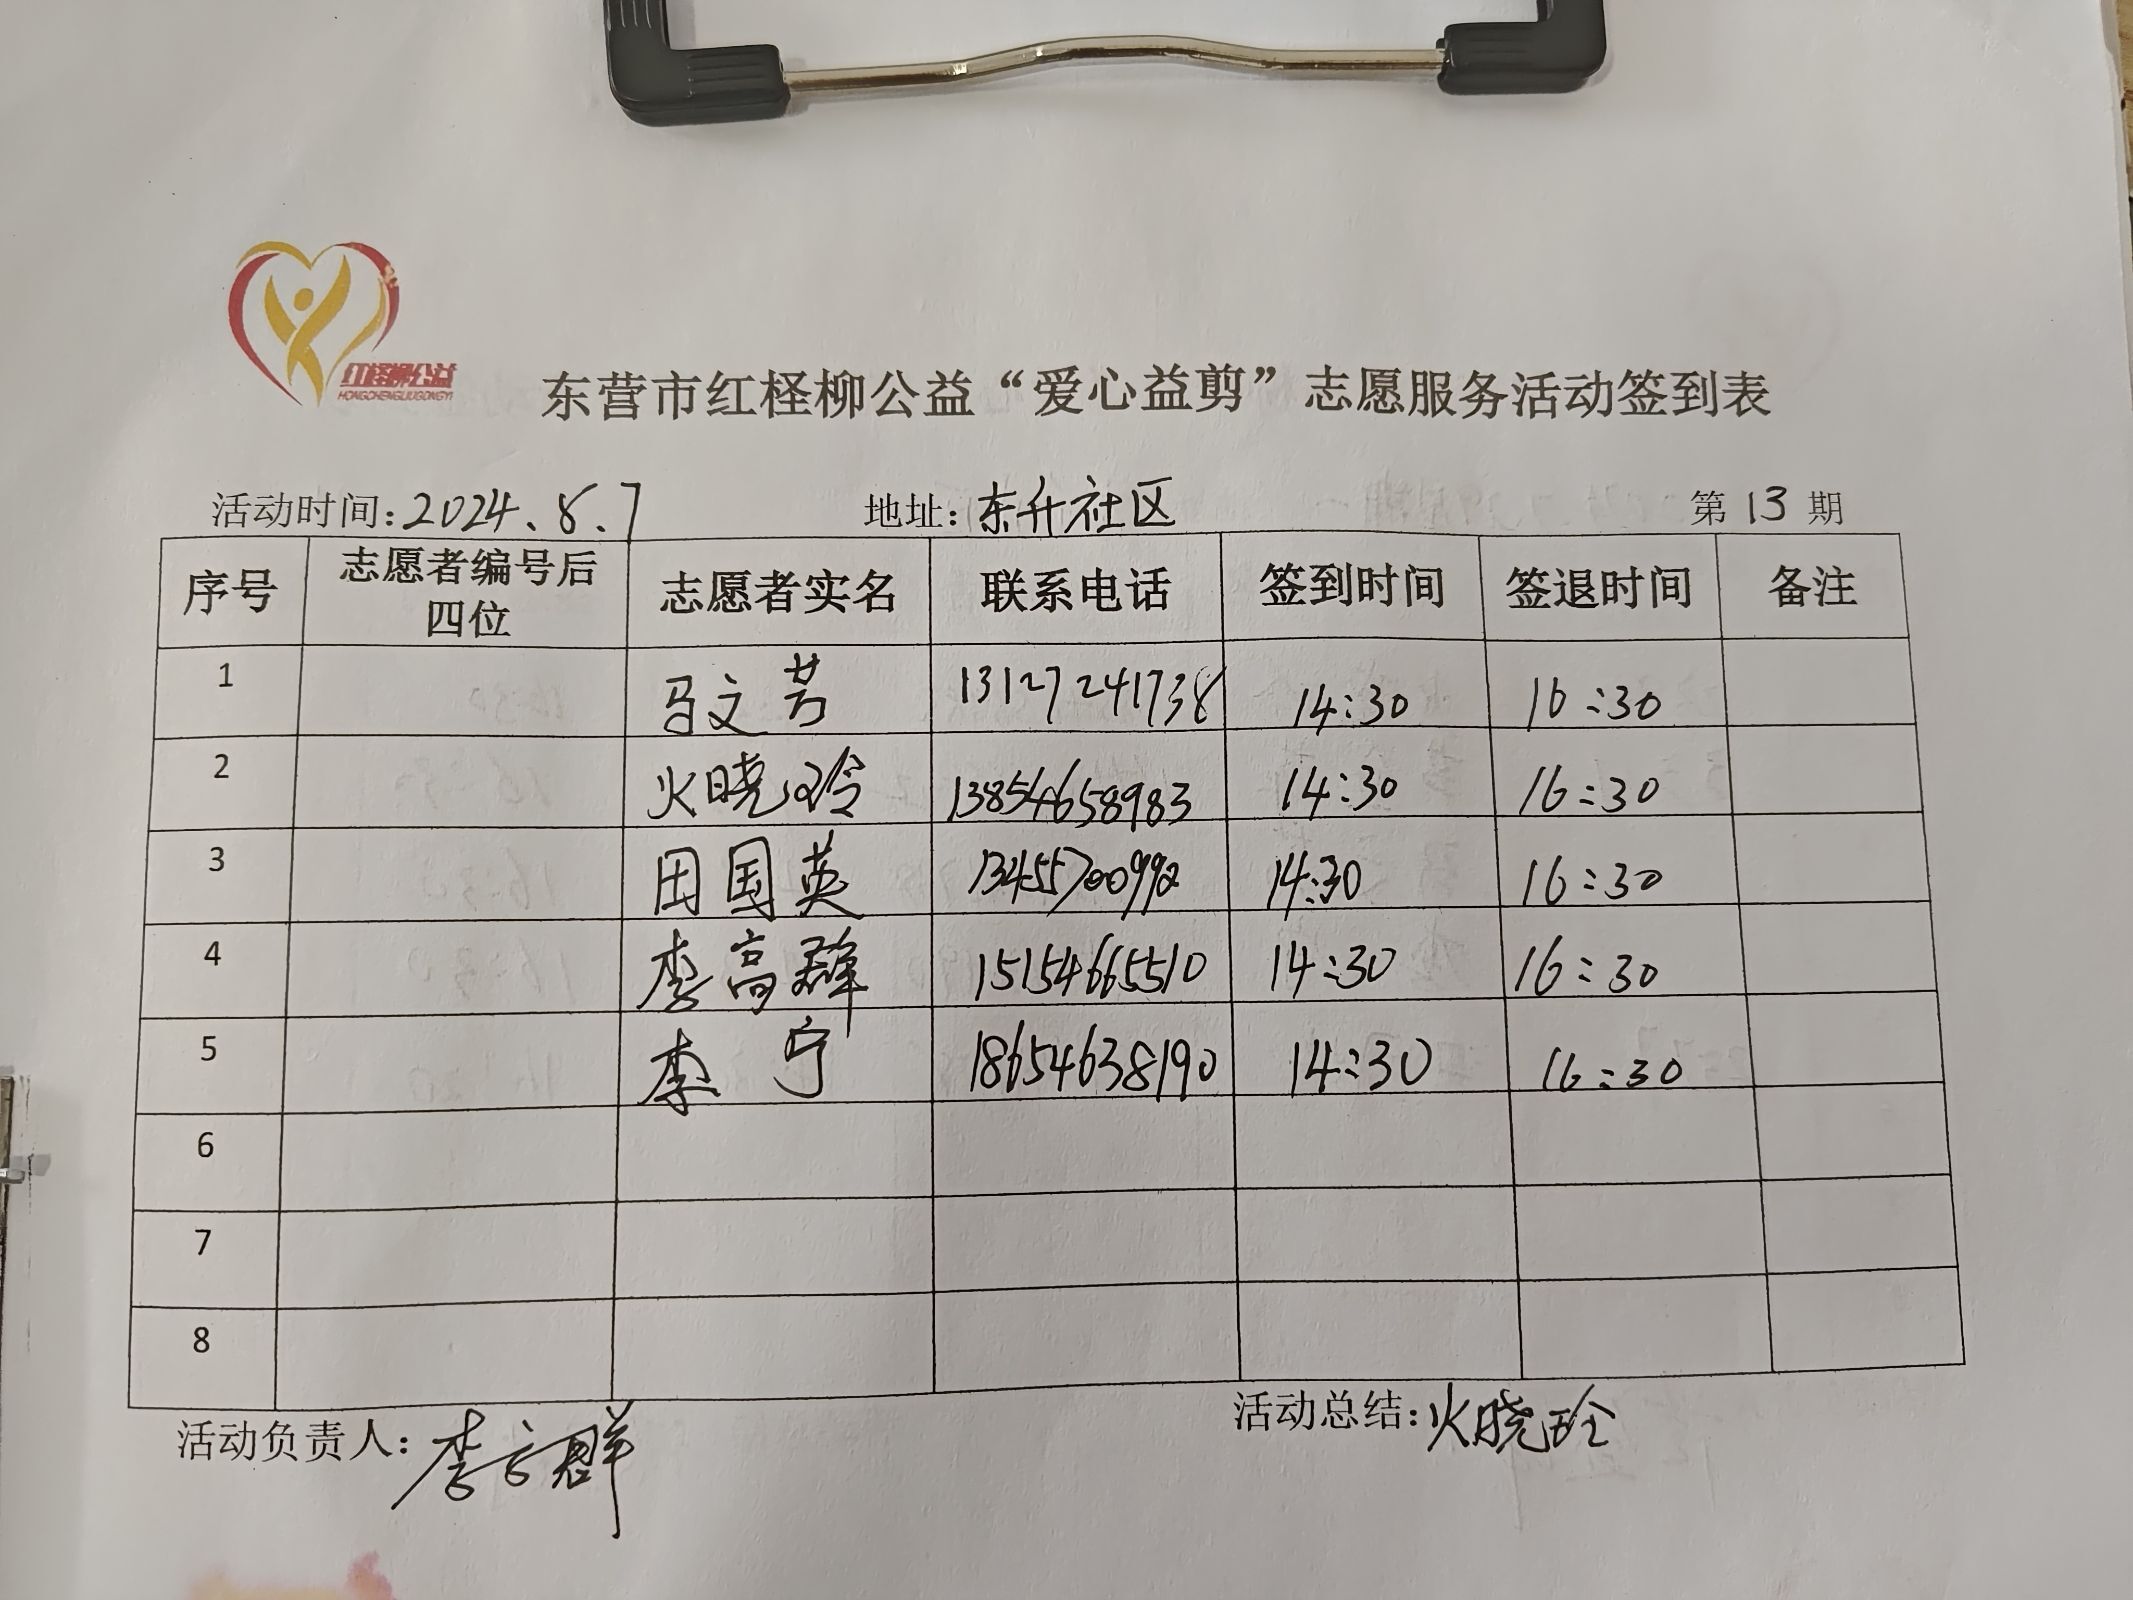 红柽柳公益
HONGCHENGLIUGONGYI
东营市红柽柳公益“爱心益剪”志愿服务活动签到表
活动时间:2024.8.7 地址:东升社区 第13期
序号 志愿者编号后四位 志愿者实名 联系电话 签到时间 签退时间 备注
1 马文芳 13127241738 14:30 16:30
2 火晓玲 13854658983 14:30 16:30
3 田国英 13455700992 14:30 16:30
4 李高群 15154665510 14:30 16:30
5 李宁 18654638190 14:30 16:30
6
7
8
活动负责人:李高群 活动总结:火晓玲